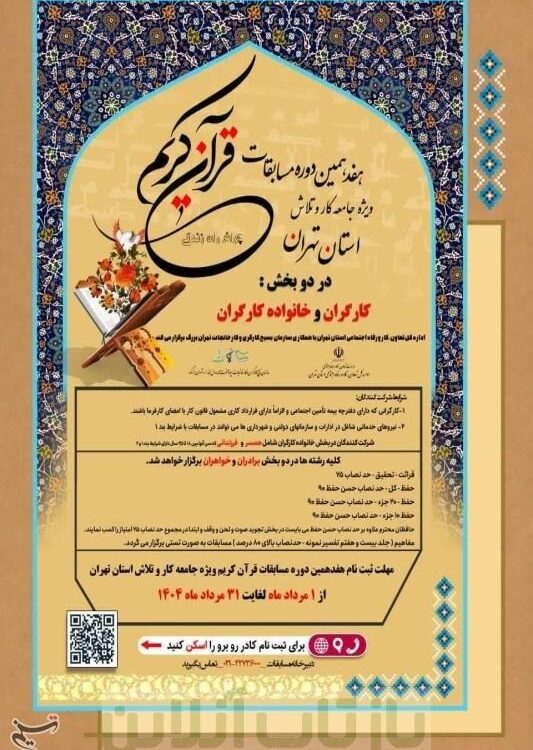 هفدهمین دوره مسابقات
قرآن کریم
ویژه جامعه کار و تلاش
استان تهران
چراغ راه زندگی
در دو بخش :
کارگران و خانواده کارگران
اداره کل تعاون، کار و رفاه اجتماعی استان تهران با همکاری سازمان بسیج کارگری و کارخانجات تهران بزرگ برگزار می کند
شرایط شرکت کنندگان:
۱-کارگرانی که دارای دفترچه بیمه تأمین اجتماعی و الزاماً دارای قرارداد کاری مشمول قانون کار با امضای کارفرما باشند.
۲- نیروهای خدماتی شاغل در ادارات و سازمانهای دولتی و شهرداری ها می توانند در مسابقات با شرایط بند ۱
شرکت کنندگان در بخش خانواده کارگران شامل همسر و فرزندانی
کلیه رشته ها در دو بخش برادران و خواهران برگزار خواهد شد.
قرائت - تحقیق - حد نصاب ۷۵
حفظ - کل - حد نصاب حسن حفظ ۹۰
حفظ - ۲۰ جزء - حد نصاب حسن حفظ ۹۰
حفظ ۱۰ جزء - حد نصاب حسن حفظ ۹۰
حافظان محترم علاوه بر حد نصاب حسن حفظ می بایست در بخش تجوید صوت و لحن و وقف و ابتدا در مجموع حد نصاب ۷۵ امتیاز را کسب نمایند.
مفاهیم ( جلد بیست و هفتم تفسیر نمونه - حد نصاب بالای ۸۰ درصد ) مسابقات به صورت تستی برگزار می گردد.
مهلت ثبت نام هفدهمین دوره مسابقات قرآن کریم ویژه جامعه کار و تلاش استان تهران
از ۱ مرداد ماه لغایت ۳۱ مرداد ماه ۱۴۰۴
برای ثبت نام کادر رو برو را اسکن کنید
دبیرخانه مسابقات _ ۲۲۷۳۶۰۰۰-۰۲۱ _ تماس بگیرید
بازتاب آنلاین
تسنیم